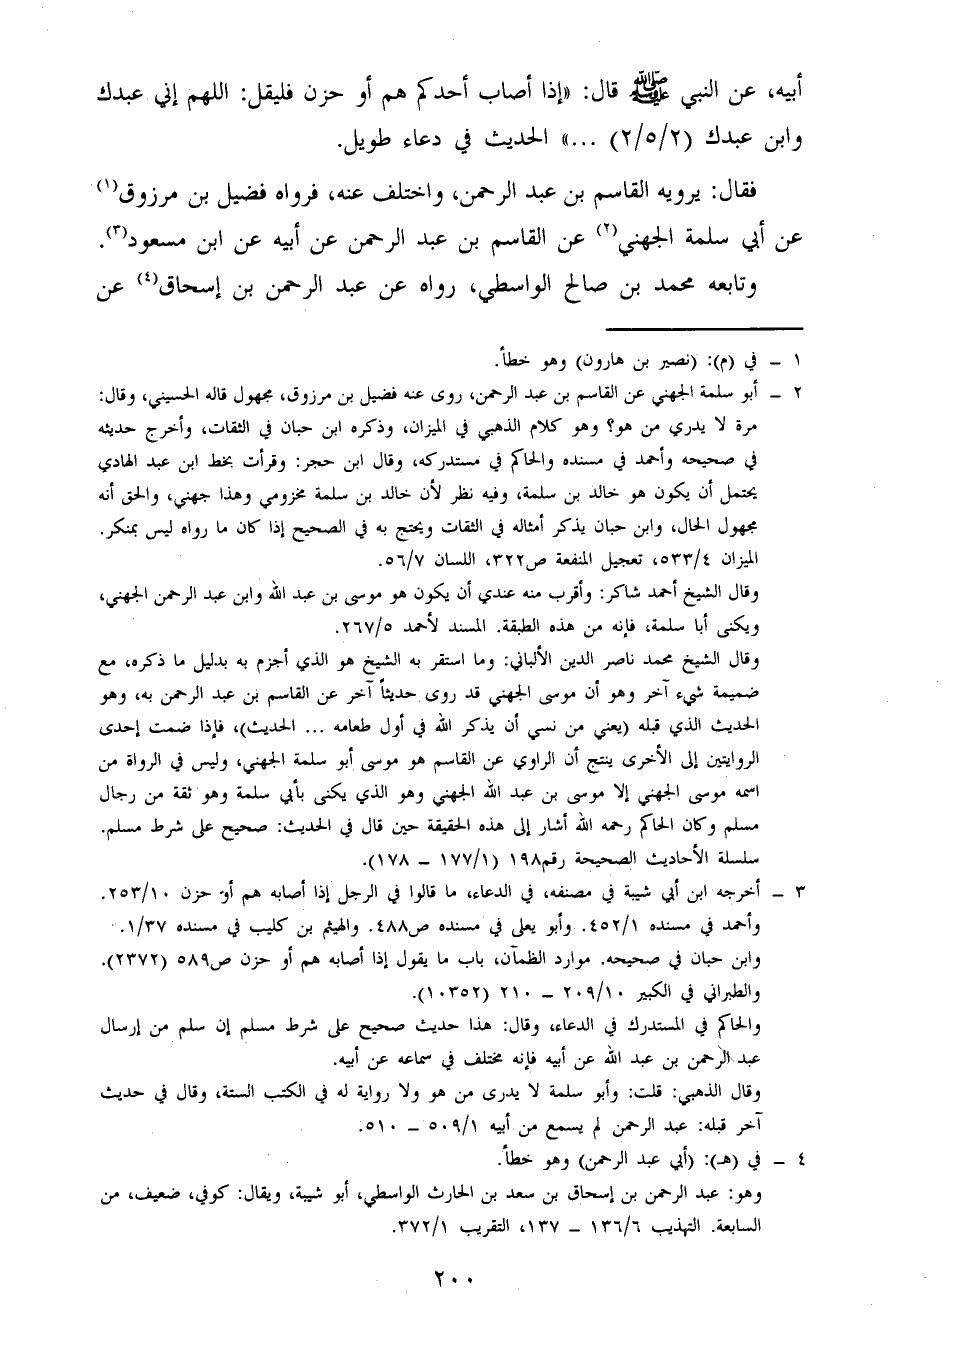 أبيه، عن النبي ﷺ قال: «إذا أصاب أحدكم هم أو حزن فليقل: اللهم إني عبدك
وابن عبدك (٢/٥/٢) ...» الحديث في دعاء طويل.
فقال: يرويه القاسم بن عبد الرحمن، واختلف عنه، فرواه فضيل بن مرزوق(١)
عن أبي سلمة الجهني(٢) عن القاسم بن عبد الرحمن عن أبيه عن ابن مسعود(٣).
وتابعه محمد بن صالح الواسطي، رواه عن عبد الرحمن بن إسحاق(٤) عن
١ – في (م): (نصير بن هارون) وهو خطأ.
٢ – أبو سلمة الجهني عن القاسم بن عبد الرحمن، روى عنه فضيل بن مرزوق، مجهول قاله الحسيني، وقال:
مرة لا يدري من هو؟ وهو كلام الذهبي في الميزان، وذكره ابن حبان في الثقات، وأخرج حديثه
في صحيحه وأحمد في مسنده والحاكم في مستدركه، وقال ابن حجر: وقرأت بخط ابن عبد الهادي
يحتمل أن يكون هو خالد بن سلمة، وفيه نظر لأن خالد بن سلمة مخزومي وهذا جهني، والحق أنه
مجهول الحال، وابن حبان يذكر أمثاله في الثقات ويحتج به في الصحيح إذا كان ما رواه ليس بمنكر.
الميزان ٥٣٣/٤، تعجيل المنفعة ص٣٢٢، اللسان ٥٦/٧.
وقال الشيخ أحمد شاكر: وأقرب منه عندي أن يكون هو موسى بن عبد الله وابن عبد الرحمن الجهني،
ويكنى أبا سلمة، فإنه من هذه الطبقة. المسند لأحمد ٢٦٧/٥.
وقال الشيخ محمد ناصر الدين الألباني: وما استقر به الشيخ هو الذي أجزم به بدليل ما ذكره، مع
ضميمة شيء آخر وهو أن موسى الجهني قد روى حديثاً آخر عن القاسم بن عبد الرحمن به، وهو
الحديث الذي قبله (يعني من نسي أن يذكر الله في أول طعامه ... الحديث)، فإذا ضمت إحدى
الروايتين إلى الأخرى ينتج أن الراوي عن القاسم هو موسى أبو سلمة الجهني، وليس في الرواة من
اسمه موسى الجهني إلا موسى بن عبد الله الجهني وهو الذي يكنى بأبي سلمة وهو ثقة من رجال
مسلم وكان الحاكم رحمه الله أشار إلى هذه الحقيقة حين قال في الحديث: صحيح على شرط مسلم.
سلسلة الأحاديث الصحيحة رقم١٩٨ (١٧٧/١ – ١٧٨).
٣ – أخرجه ابن أبي شيبة في مصنفه، في الدعاء، ما قالوا في الرجل إذا أصابه هم أو حزن ٢٥٣/١٠.
وأحمد في مسنده ٤٥٢/١. وأبو يعلى في مسنده ص٤٨٨. والهيثم بن كليب في مسنده ١/٣٧.
وابن حبان في صحيحه. موارد الظمآن، باب ما يقول إذا أصابه هم أو حزن ص٥٨٩ (٢٣٧٢).
والطبراني في الكبير ٢٠٩/١٠ – ٢١٠ (١٠٣٥٢).
والحاكم في المستدرك في الدعاء، وقال: هذا حديث صحيح على شرط مسلم إن سلم من إرسال
عبد الرحمن بن عبد الله عن أبيه فإنه مختلف في سماعه عن أبيه.
وقال الذهبي: قلت: وأبو سلمة لا يدرى من هو ولا رواية له في الكتب الستة، وقال في حديث
آخر قبله: عبد الرحمن لم يسمع من أبيه ٥٠٩/١ – ٥١٠.
٤ – في (هـ): (أبي عبد الرحمن) وهو خطأ.
وهو: عبد الرحمن بن إسحاق بن سعد بن الحارث الواسطي، أبو شيبة، ويقال: كوفي، ضعيف، من
السابعة. التهذيب ١٣٦/٦ – ١٣٧، التقريب ٣٧٢/١.
٢٠٠